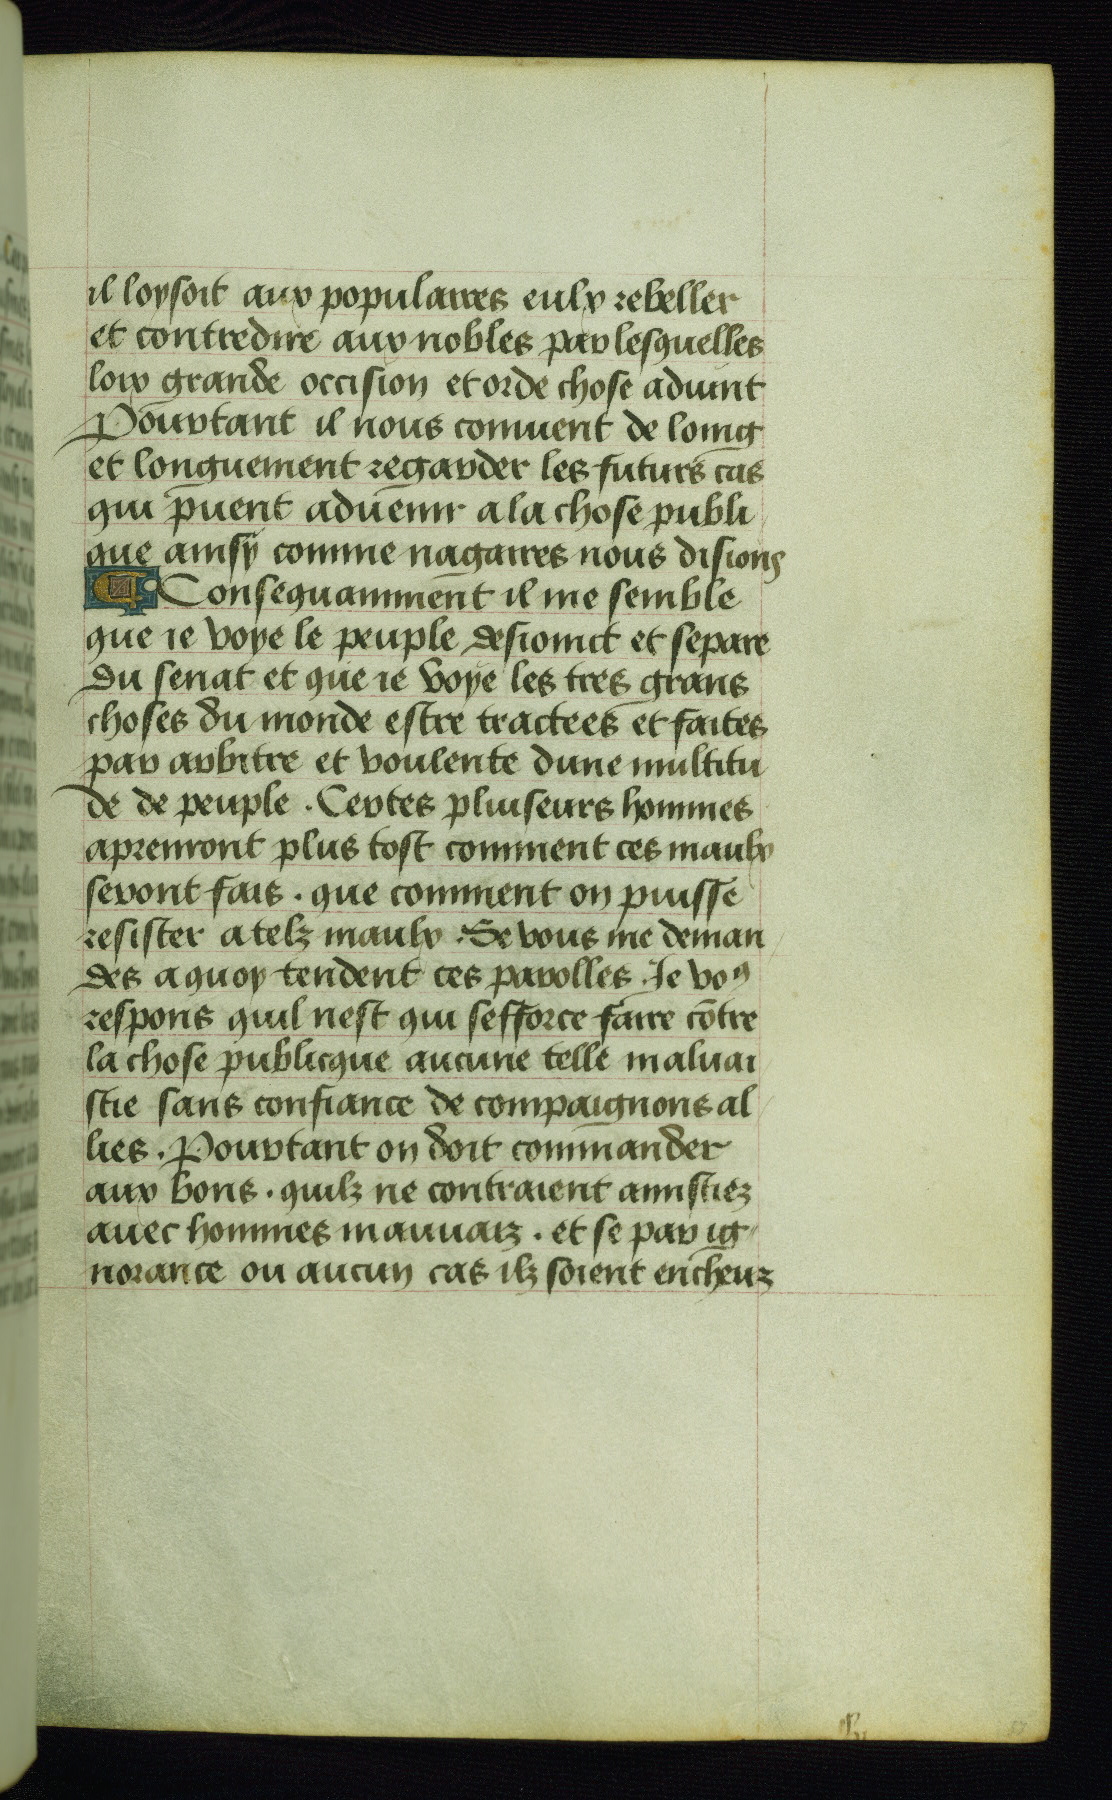 il loysoit aux populaires eulx rebeller
et contredire aux nobles par lesquelles
loix grande occision et orde chose aduint
Pourtant il nous conuient de loing
et longuement regarder les futurs cas
qui puent aduenir a la chose publi
que ainsy comme nagaires nous disions
Consequamment il me semble
que ie voye le peuple desioinct et separe
du senat et que ie voye les tres grans
choses du monde estre tractees et faites
par arbitre et voulente dune multitu
de de peuple . Certes pluiseurs hommes
aprenront plus tost comment ces maulx
seront fais . que comment on puisse
resister a telz maulx . Se vous me deman
des a quoy tendent ces parolles . Je voꝯ
respons quil nest qui sefforce faire cōtre
la chose publicque aucune telle maluai
stie sans confiance de compaignons al
lies . Pourtant on doit commander
aux bons . quilz ne contraient amistiez
auec hommes mauuaiz . et se par ig
norance ou aucun cas ilz soient encheuz